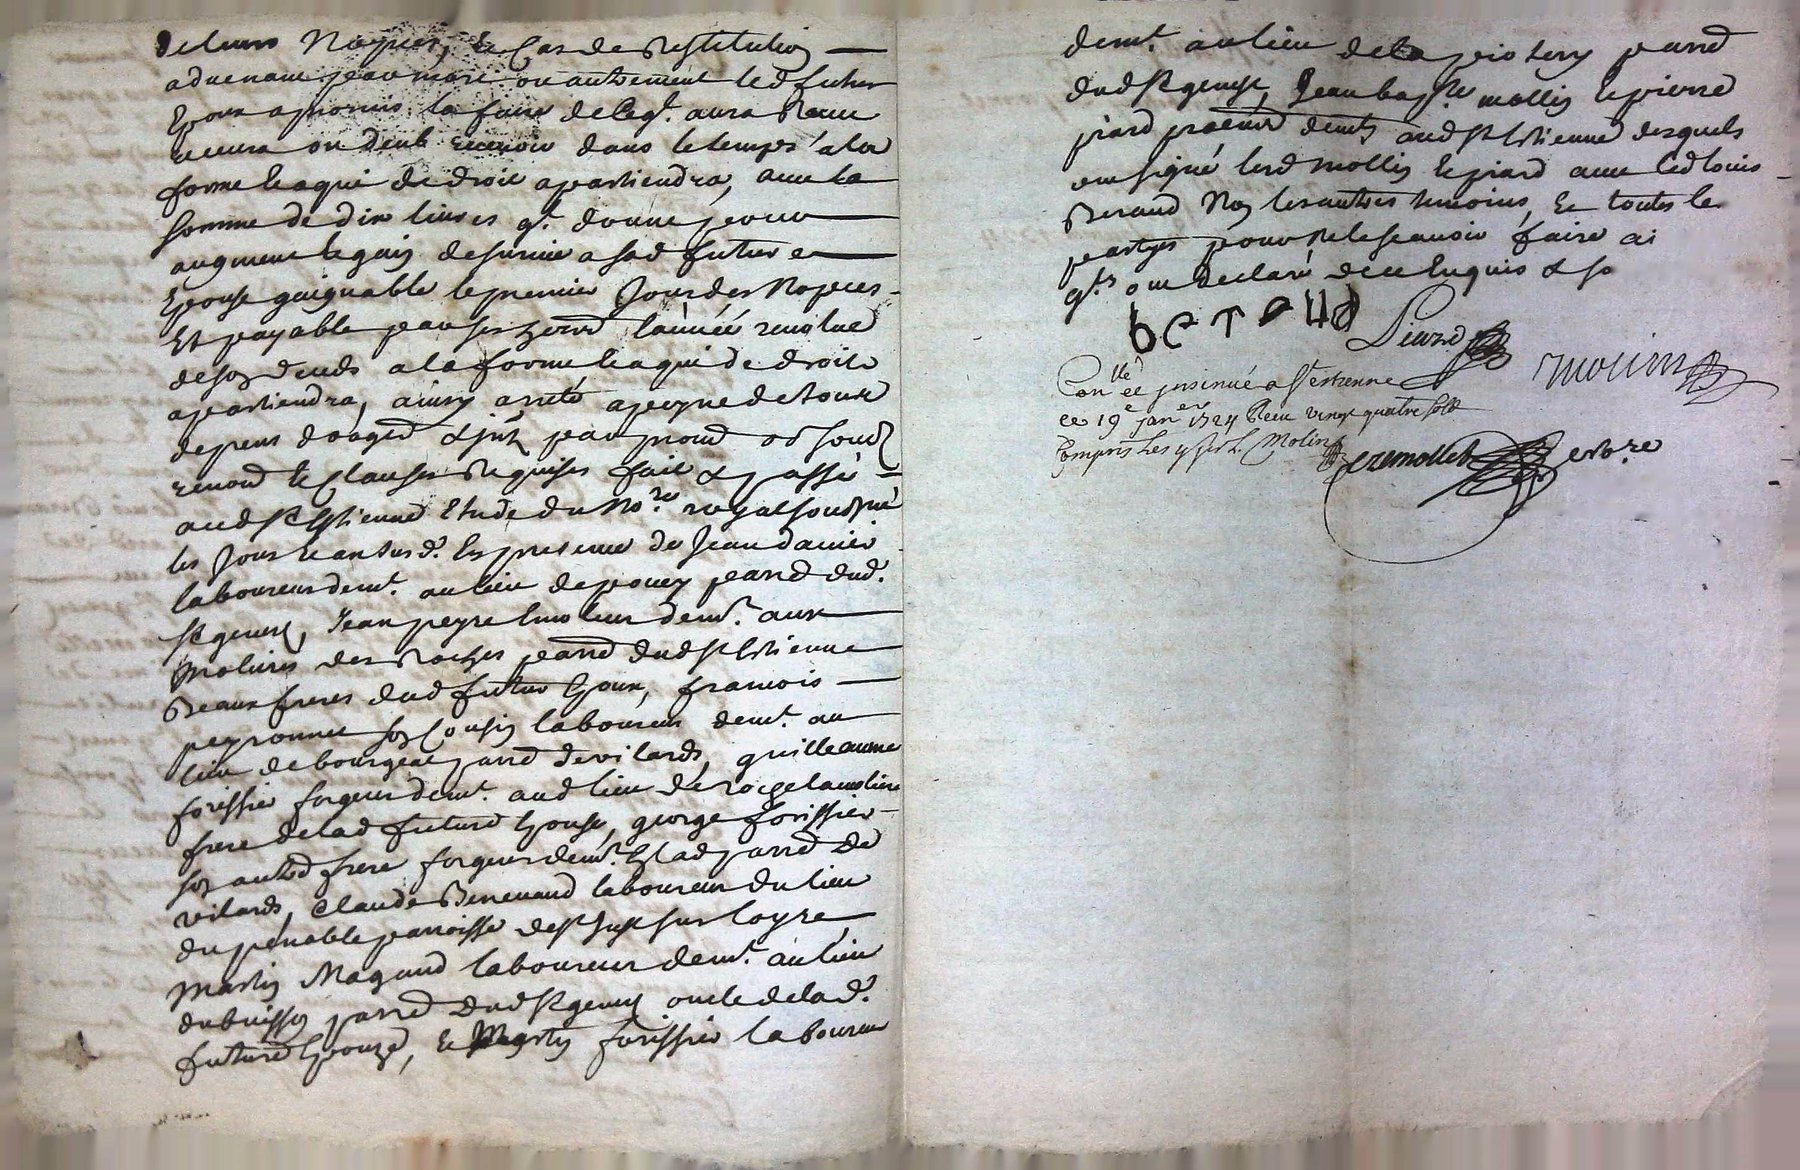 de leurs Nopces, Et Cas de Restitution
advenant par mort ou autrement led futur
Epoux a promis la faire de Ce qt. aura Receu
ou deub recevoir dans le temps a la
forme Et a qui de droit apartiendra, avec la
somme de dix livres qt. donne pour
augment Et gain de survie a sad future
Epouse gaignable le premier Jour des Nopces
Et payable par ses l'année revolue
de son deceds a la forme Et a qui de droit
apartiendra, ainsy arreté a peyne de tous
depens domages & jnts par
renond Et Clauses Requises fait & passé
aud St Estienne Etude du Nore. royal soubsné
les Jour Et an susd. En presence de Jean
laboureur demt. au lieu de parr dud.
St genest, Jean peyre demt. aux
molieres des Roches parr dud St Estienne
Beaux freres dud futur Epoux, francois
peyronnet son Cousin laboureur demt. au
lieu de parr de vilards, guilleaume
forissier forgeur demt. aud lieu de rochetamoliere
frere de lad future Epouse, george forissier
son autre frere forgeur demt. En lad parr de
vilards, Claude laboureur du lieu
du penable parroisse de St Just sur loyre
Martin Magand laboureur demt. au lieu
du buisson parr dud St genest oncle de lad.
future Epouze, Et Martin forissier laboureur
demt. au lieu de la parr
dud St genest, Jean bapte mollin Et pierre
piard demts aud St Estienne desquels
ont signé lesd mollin Et piard avec led louis
Beraud Non les autres temoins, Et toutes les
partyes pour ne le scavoir faire ai
qts ont declaré de ce Enquis & so
beraud Piard
molin
Conlle et jnsinué a St estienne
ce 19e janer 1724 Receu vingt quatre sols
Compris les 4 s. p. L. Molin
cremollet nore